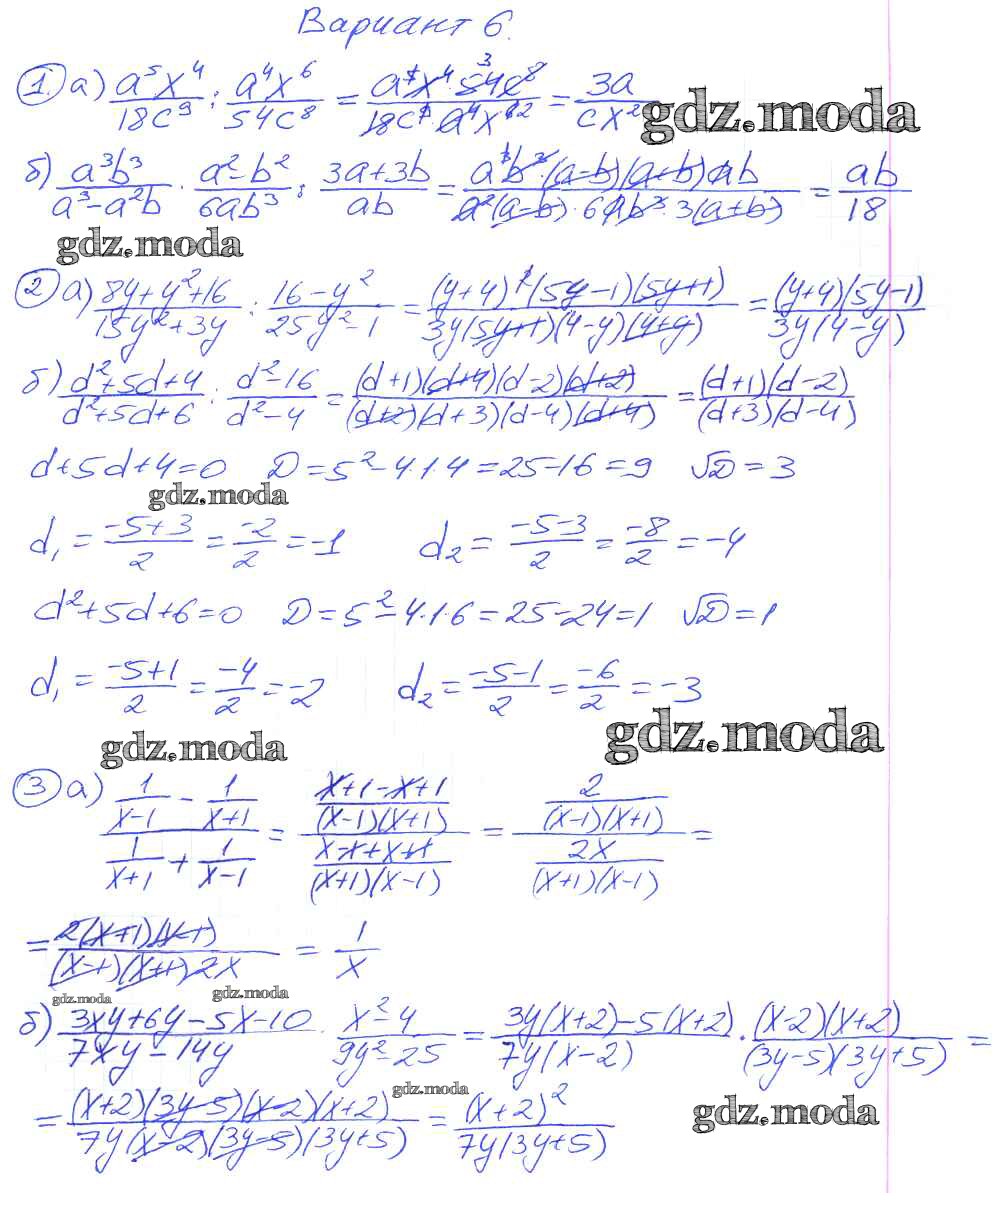 Вариант 6.
1. а) a⁵x⁴/18c⁹ : a⁴x⁶/54c⁸ = a⁵x⁴·54c⁸/18c⁹·a⁴x⁶ = 3a/cx²
gdz.moda
б) a³b³/(a³-a²b) · (a²-b²)/6ab³ : (3a+3b)/ab = a³b³·(a-b)(a+b)ab/a²(a-b)·6ab³·3(a+b) = ab/18
gdz.moda
2 а) (8y+y²+16)/(15y²+3y) : (16-y²)/(25y²-1) = (y+4)²(5y-1)(5y+1)/3y(5y+1)(4-y)(4+y) = (y+4)(5y-1)/3y(4-y)
б) (d²+5d+4)/(d²+5d+6) : (d²-16)/(d²-4) = (d+1)(d+4)(d-2)(d+2)/(d+2)(d+3)(d-4)(d+4) = (d+1)(d-2)/(d+3)(d-4)
d+5d+4=0 D=5²-4·1·4=25-16=9 √D=3
gdz.moda
d₁ = (-5+3)/2 = -2/2 = -1 d₂ = (-5-3)/2 = -8/2 = -4
d²+5d+6=0 D=5²-4·1·6=25-24=1 √D=1
d₁ = (-5+1)/2 = -4/2 = -2 d₂ = (-5-1)/2 = -6/2 = -3
gdz.moda
gdz.moda
3 а) (1/(x-1) - 1/(x+1))/(1/(x+1) + 1/(x-1)) = ((x+1-x+1)/(x-1)(x+1))/((x-1+x+1)/(x+1)(x-1)) = (2/(x-1)(x+1))/(2x/(x+1)(x-1)) =
= 2(x+1)(x-1)/(x-1)(x+1)2x = 1/x
gdz.moda
gdz.moda
б) (3xy+6y-5x-10)/(7xy-14y) · (x²-4)/(9y²-25) = (3y(x+2)-5(x+2))/7y(x-2) · (x-2)(x+2)/(3y-5)(3y+5) =
gdz.moda
= (x+2)(3y-5)(x-2)(x+2)/7y(x-2)(3y-5)(3y+5) = (x+2)²/7y(3y+5)
gdz.moda